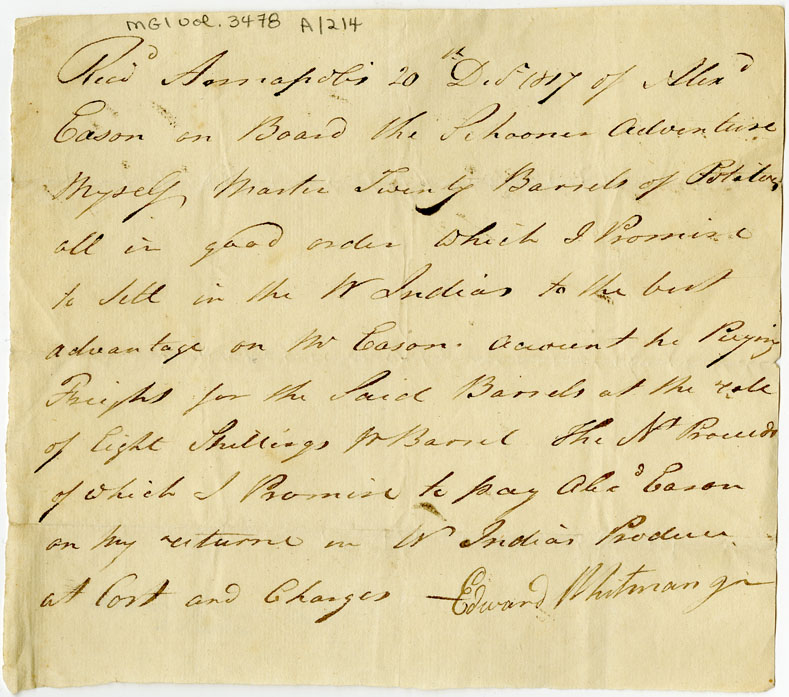 MG1 vol. 3478 A/214
Recd Annapolis 20th Decr 1817 of Alexd
Eason on Board the Schooner Adventure
Myself Master Twenty Barrels of Potatoes
all in good order which I Promise
to Sell in the W Indias to the best
advantage on Mr Eason account he Paying
Freight for the Said Barrels at the rate
of Eight Shillings pr Barrel the Nt Proceeds
of which I Promise to pay Alexd Eason
on my returne in W Indias Produce
at Cost and Charges Edward Whitman Jr